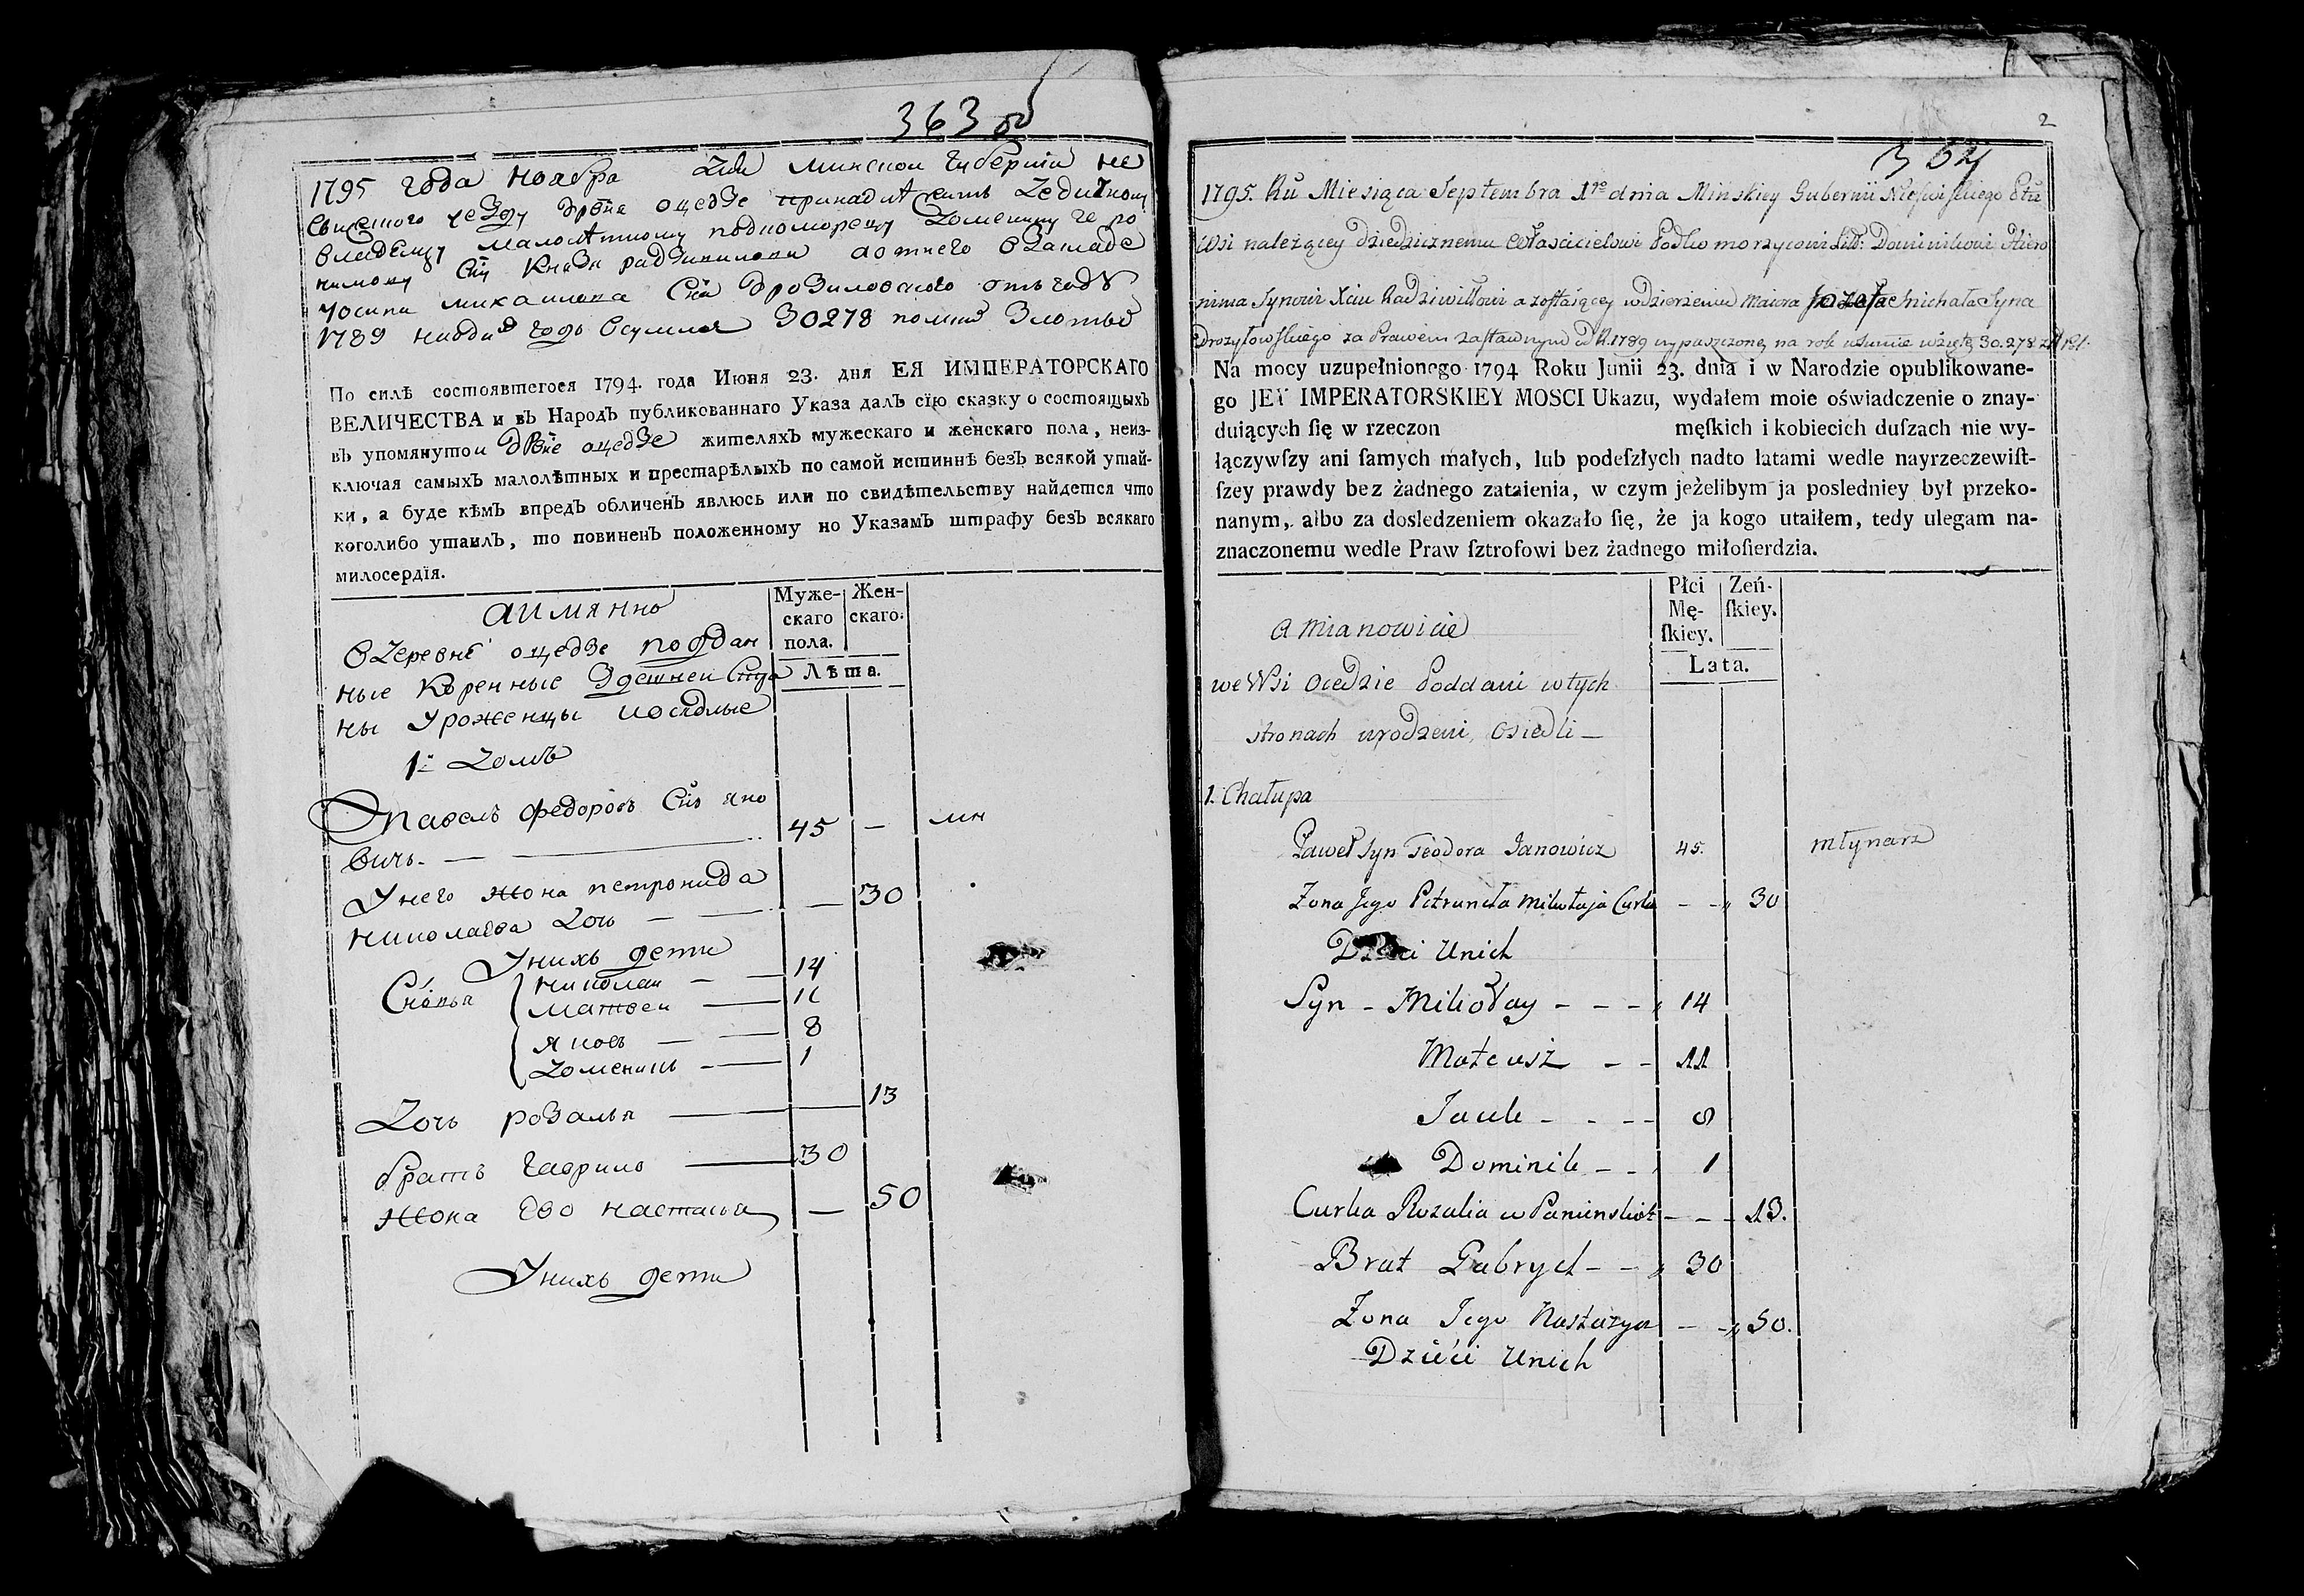 363 об
1795 года ноября дня минской губернии не
свижского уезду дрвне оцедзе принадлежитъ дедичному
владелцу малолѣтному подкоморему Доменику геро
нимову Сну Князю радзивилови а отнего взакладе
иосипа михаилова Сна дрозиловского отъ году
1789 наодинъ годъ всумме 30278 полскихъ Злотыхъ
По силѣ состоявшегося 1794. года Июня 23. дня ЕЯ ИМПЕРАТОРСКАГО
ВЕЛИЧЕСТВА и въ Народъ публикованнаго Указа далъ сїю сказку о состоящыхъ
въ упомянутои дрвне оцедзе жителяхъ мужескаго и женскаго пола, неиз-
ключая самыхъ малолѣтных и престарѣлыхъ по самой истиннѣ безъ всякой утай-
ки, а буде кѣмъ впредъ обличенъ явлюсь или по свидѣтельству найдется что
коголибо утаилъ, то повиненъ положенному по Указамъ штрафу безъ всякаго
милосердїя.
аимянно
Муже-скаго пола. Жен-скаго.
Лѣта.
вдеревнѣ оцедзе поддан
ные Коренные Здешнеи Стра
ны Уроженцы иоседлые
1й домъ
Павелъ федоровъ Снъ яно
вичъ. — 45 — мн
Унего жона петронида
николаева дочь — — 30
Унихъ дети
Сновья николаи — 14
матвеи — 11
яковъ — 8
доменикъ — 1
дочь розалья — 13
братъ гаврило — 30
жона его настасья — 50
Унихъ дети
2
364
1795. Rŭ Miesiąca Septembra 1go dnia Mińskiey Gubernii Nieświſkiego Ptŭ
Wsi należącey dziedzicznemu Właścicielowi Podkomorzycowi Litt: Dominikowi Hiero
nima Synowi Xciu Radziwiłłowi a zoſtaiącey wdzierżeniu Maiora Jozefa Michała Syna
Drozyłowſkiego za Prawem zaſtawnym od R. 1789 wypuszczoney na rok wsumie wziętey 30.278 zł Pol.
Na mocy uzupełnionego 1794 Roku Junii 23. dnia i w Narodzie opublikowane-
go JEY IMPERATORSKIEY MOSCI Ukazu, wydałem moie oświadczenie o znay-
duiących ſię w rzeczon męſkich i kobiecich duſzach nie wy-
łączywſzy ani ſamych małych, lub podeſzłych nadto latami wedle nayrzeczewiſt-
ſzey prawdy bez żadnego zataienia, w czym jeżelibym ja posledniey był przeko-
nanym, albo za dosledzeniem okazało ſię, że ja kogo utaiłem, tedy ulegam na-
znaczonemu wedle Praw ſztrofowi bez żadnego miłoſierdzia.
a mianowicie
Płci Mę-ſkiey. Zeń-ſkiey.
Lata.
we Wsi Ocedzie Poddani wtych
stronach urodzeni, Osiedli —
1. Chałupa
Paweł Syn Teodora Janowicz 45. młynarz
Żona Jego Petrunela Mikołaja Curka - - 30
Dzieci Unich
Syn - Mikołay - - - 14
Mateusz - - 11
Jacub - - - - 8
Dominik - - 1
Curka Rozalia w Panienskiet - - - 13.
Brat Gabryel - - 30
Żona Jego Nastazya - - 50.
Dzieci Unich